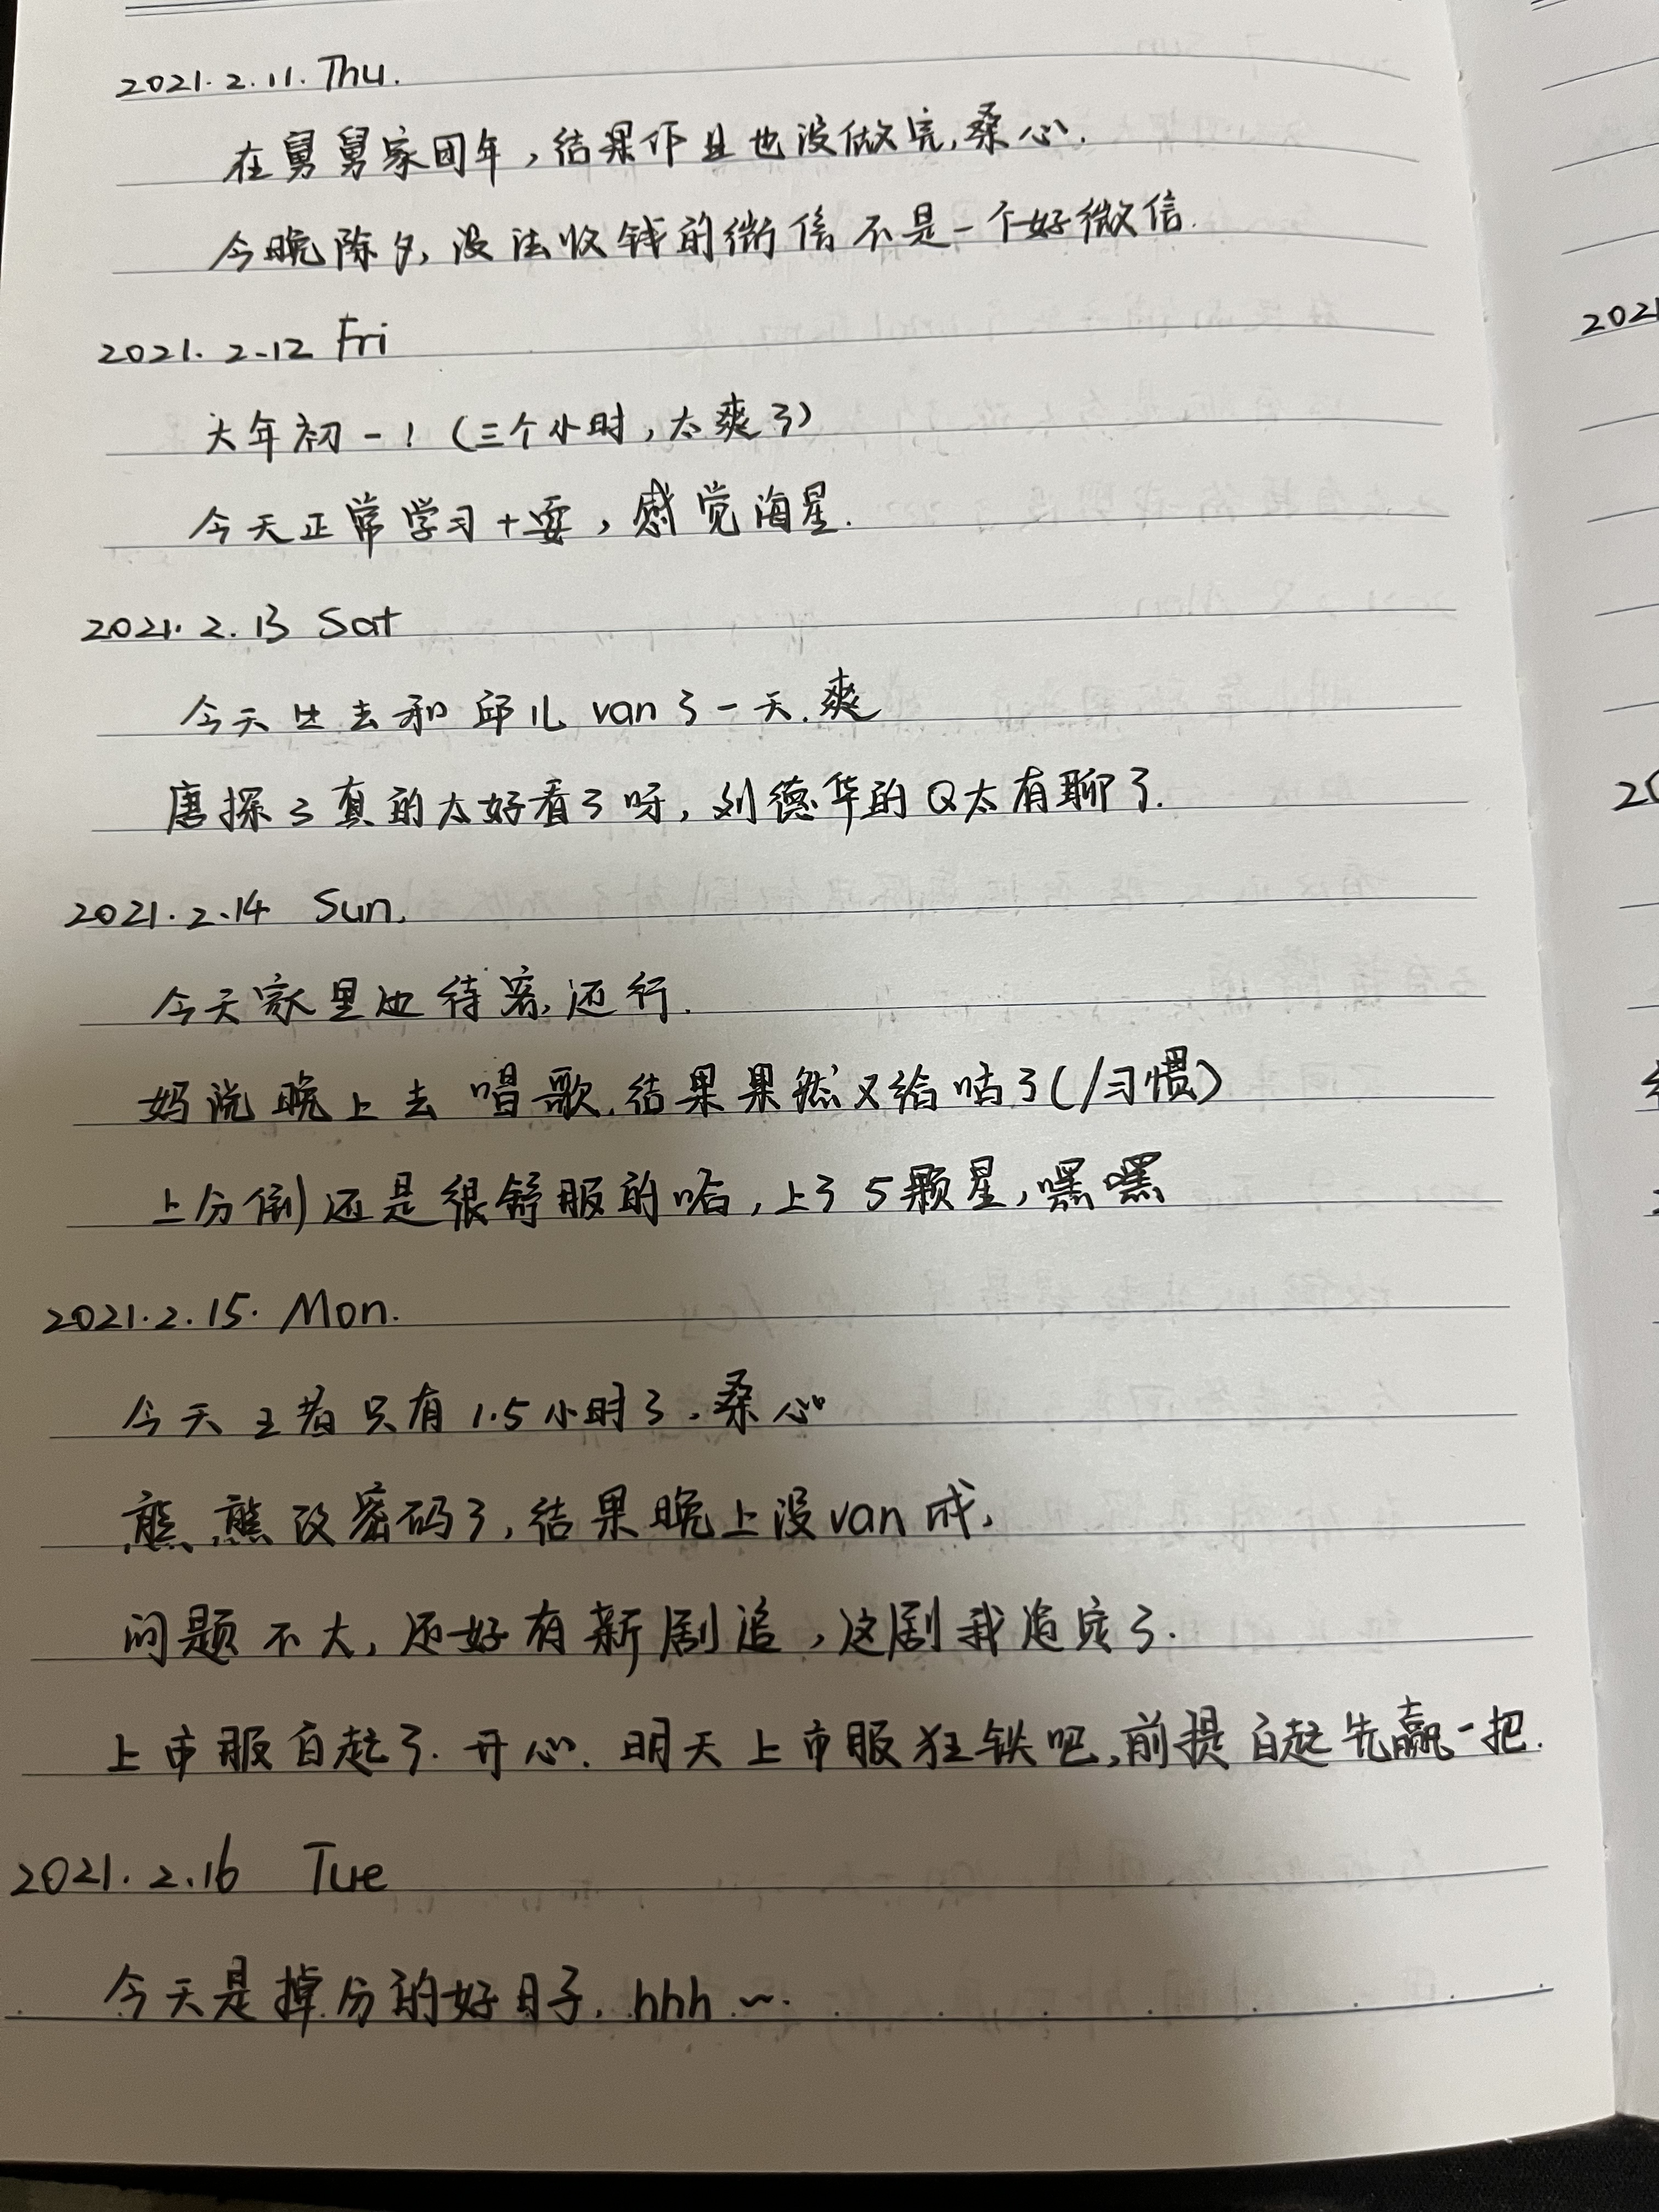 2021.2.11.Thu.
在舅舅家团年,结果作业也没做完,桑心.
今晚除夕,没法收钱的微信不是一个好微信.
2021.2.12 Fri
大年初一!(三个小时,太爽了)
今天正常学习+耍,感觉海星.
2021.2.13 Sat
今天出去和邱儿van了一天.爽
唐探3真的太好看了呀,刘德华的Q太有聊了.
2021.2.14 Sun.
今天家里也待客,还行.
妈说晚上去唱歌.结果果然又给咕了(/习惯)
上分倒还是很舒服的哈,上了5颗星,嘿嘿
2021.2.15.Mon.
今天王者只有1.5小时了.桑心
熊熊改密码了,结果晚上没van成,
问题不大,还好有新剧追,这剧我追定了.
上市服白起了.开心.明天上市服狂铁吧,前提白起先赢一把.
2021.2.16 Tue
今天是掉分的好日子.hhh~.
2021
20